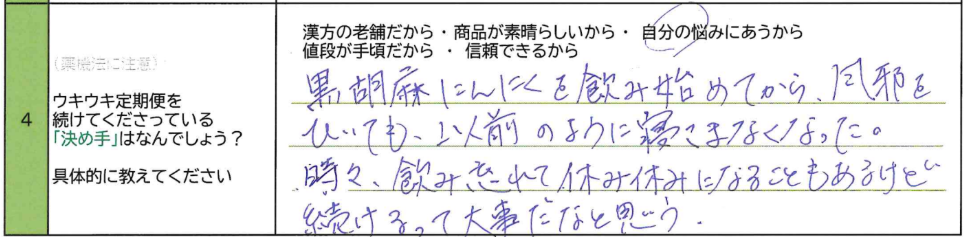 漢方の老舗だから・商品が素晴らしいから・ 自分の悩みにあうから
値段が手頃だから ・ 信頼できるから
(薬機法に注意)
4
ウキウキ定期便を
続けてくださっている
「決め手」はなんでしょう?
具体的に教えてください
黒胡麻にんにくを飲み始めてから、風邪を
ひいても、以前のように寝こまなくなった。
時々、飲み忘れて休み休みになることもあるけど
続けるって大事だなと思う.